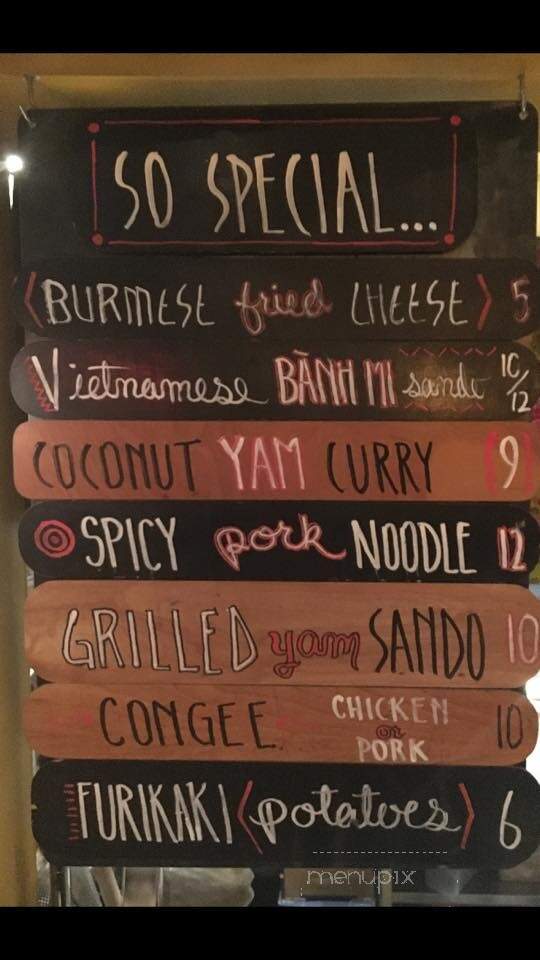 SO SPECIAL...
BURMESE fried CHEESE 5
Vietnamese BÀNH MI sando 10/12
COCONUT YAM CURRY 9
SPICY pork NOODLE 12
GRILLED yam SANDO 10
CONGEE CHICKEN or PORK 10
FURIKAKI (potatoes) 6
menupix